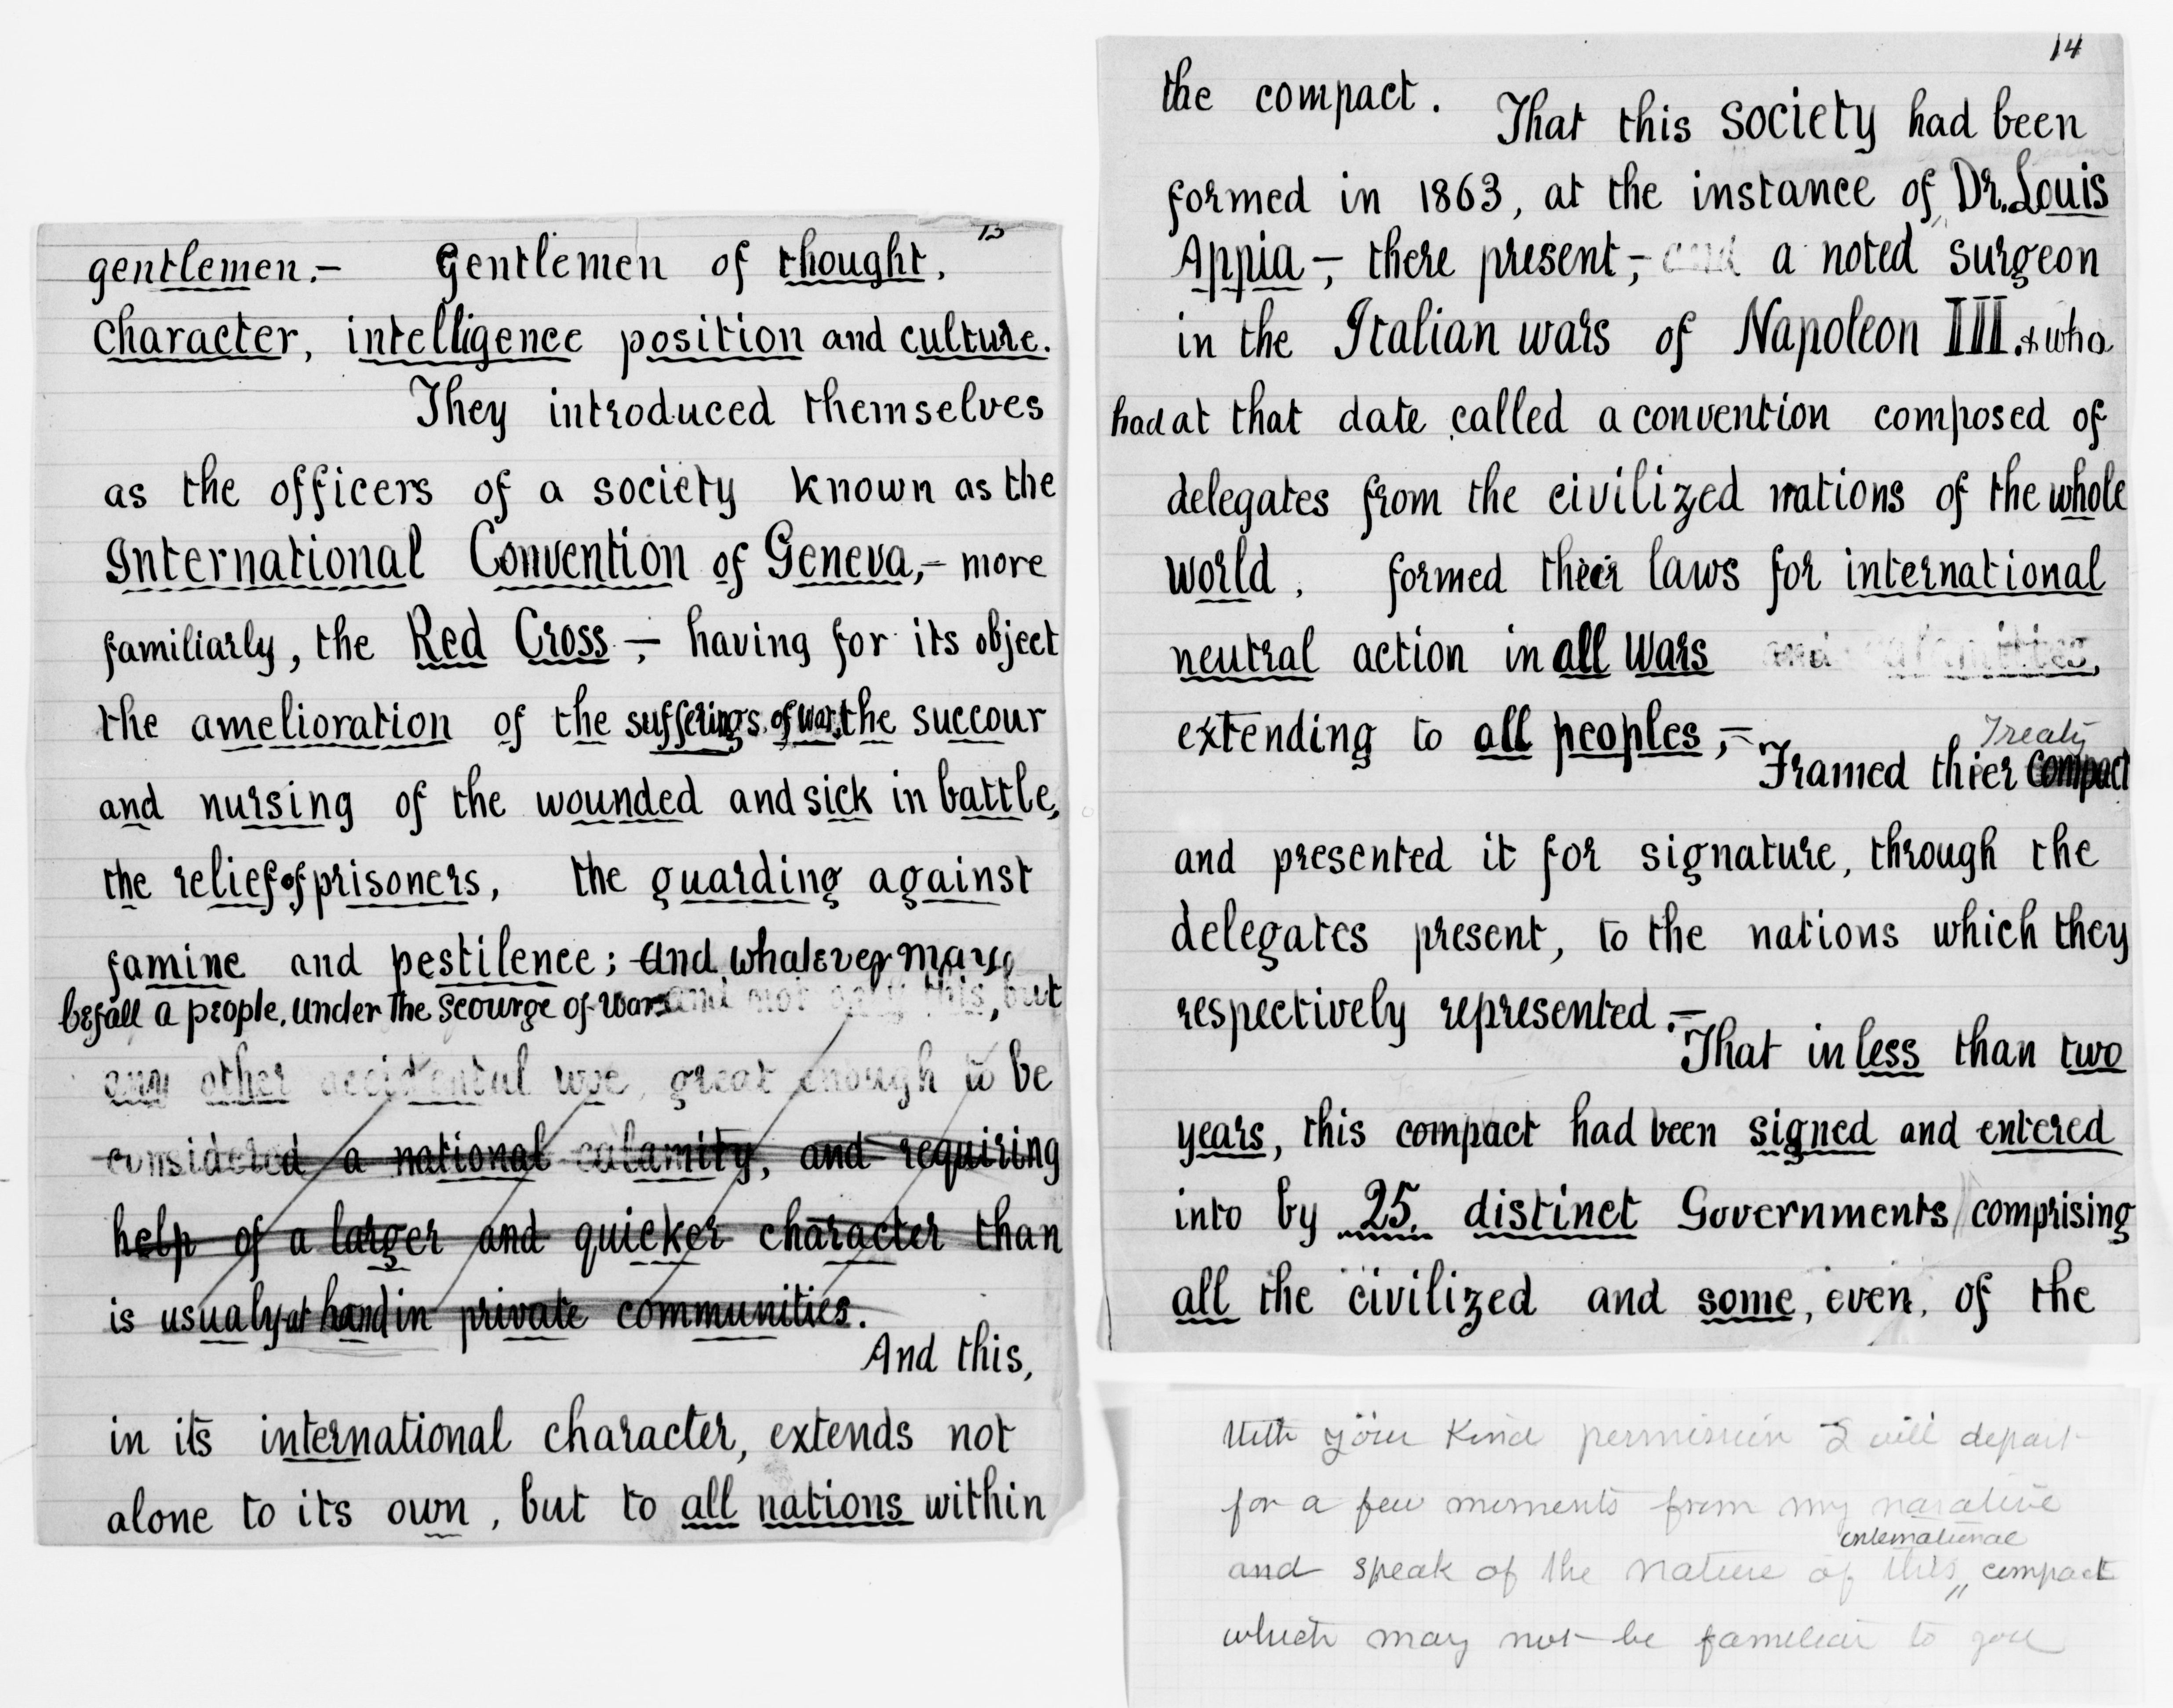 13
gentlemen.- Gentlemen of thought,
character, intelligence position and culture.
They introduced themselves
as the officers of a society known as the
International Convention of Geneva,- more
familiarly, the Red Cross -; having for its object
the amelioration of the sufferings of war, the succour
and nursing of the wounded and sick in battle,
the relief of prisoners, the guarding against
famine and pestilence; and whatever may
befall a people, under the scourge of war and not only this, but
any other accidental woe, great enough to be
considered a national calamity, and requiring
help of a larger and quicker character than
is usualy at hand in private communities.
And this,
in its international character, extends not
alone to its own, but to all nations within
14
the compact. That this society had been
formed in 1863, at the instance of Dr. Louis
Appia -, there present,- and a noted surgeon
in the Italian wars of Napoleon III. & who
had at that date called a convention composed of
delegates from the civilized nations of the whole
world, formed their laws for international
neutral action in all wars and calamities,
extending to all peoples,-
Treaty
Framed thier compact
and presented it for signature, through the
delegates present, to the nations which they
respectively represented.-
That in less than two
years, this compact had been signed and entered
into by 25. distinct Governments comprising
all the civilized and some, even, of the
With your kind permission I will depart
for a few moments from my narative
international
and speak of the nature of this compact
which may not be familiar to you